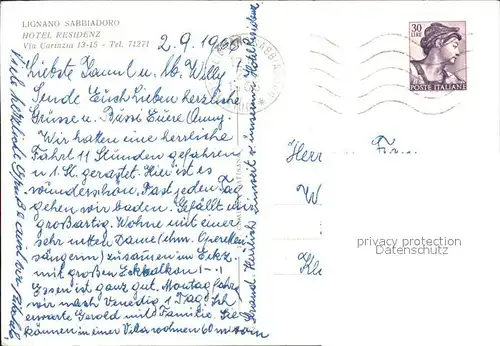 LIGNANO SABBIADORO
HOTEL RESIDENZ
Via Carinzia 13-15 - Tel. 71271
2.9.19
Liebste u. lb. Willy
Sende Euch Lieben herzliche
Grüsse u. Bussi Euere Anny.
Wir hatten eine herrliche
Fahrt 11 Stunden gefahren
u. 1 St. gerastet. Hier ist es
wunderschön. Fast jeden Tag
gehen wir baden. Gefällt mir
großartig. Wohne mit einer
sehr netten Dame (ehm. Opern
sängerin) zusammen im Eckz.
mit großen Eckbalkon
Essen ist ganz gut. Montag fahren
wir nach Venedig 1 Tag. Ich
erwarte Gerold mit Familie. Sie
können in einer Villa wohnen 60 m vom
Strand. Herrlich unserem Hotel Residenz
Viele herzliche Grüße
30
LIRE
POSTE ITALIANE
Herr
Fr
W
privacy protection
Datenschutz
Kle